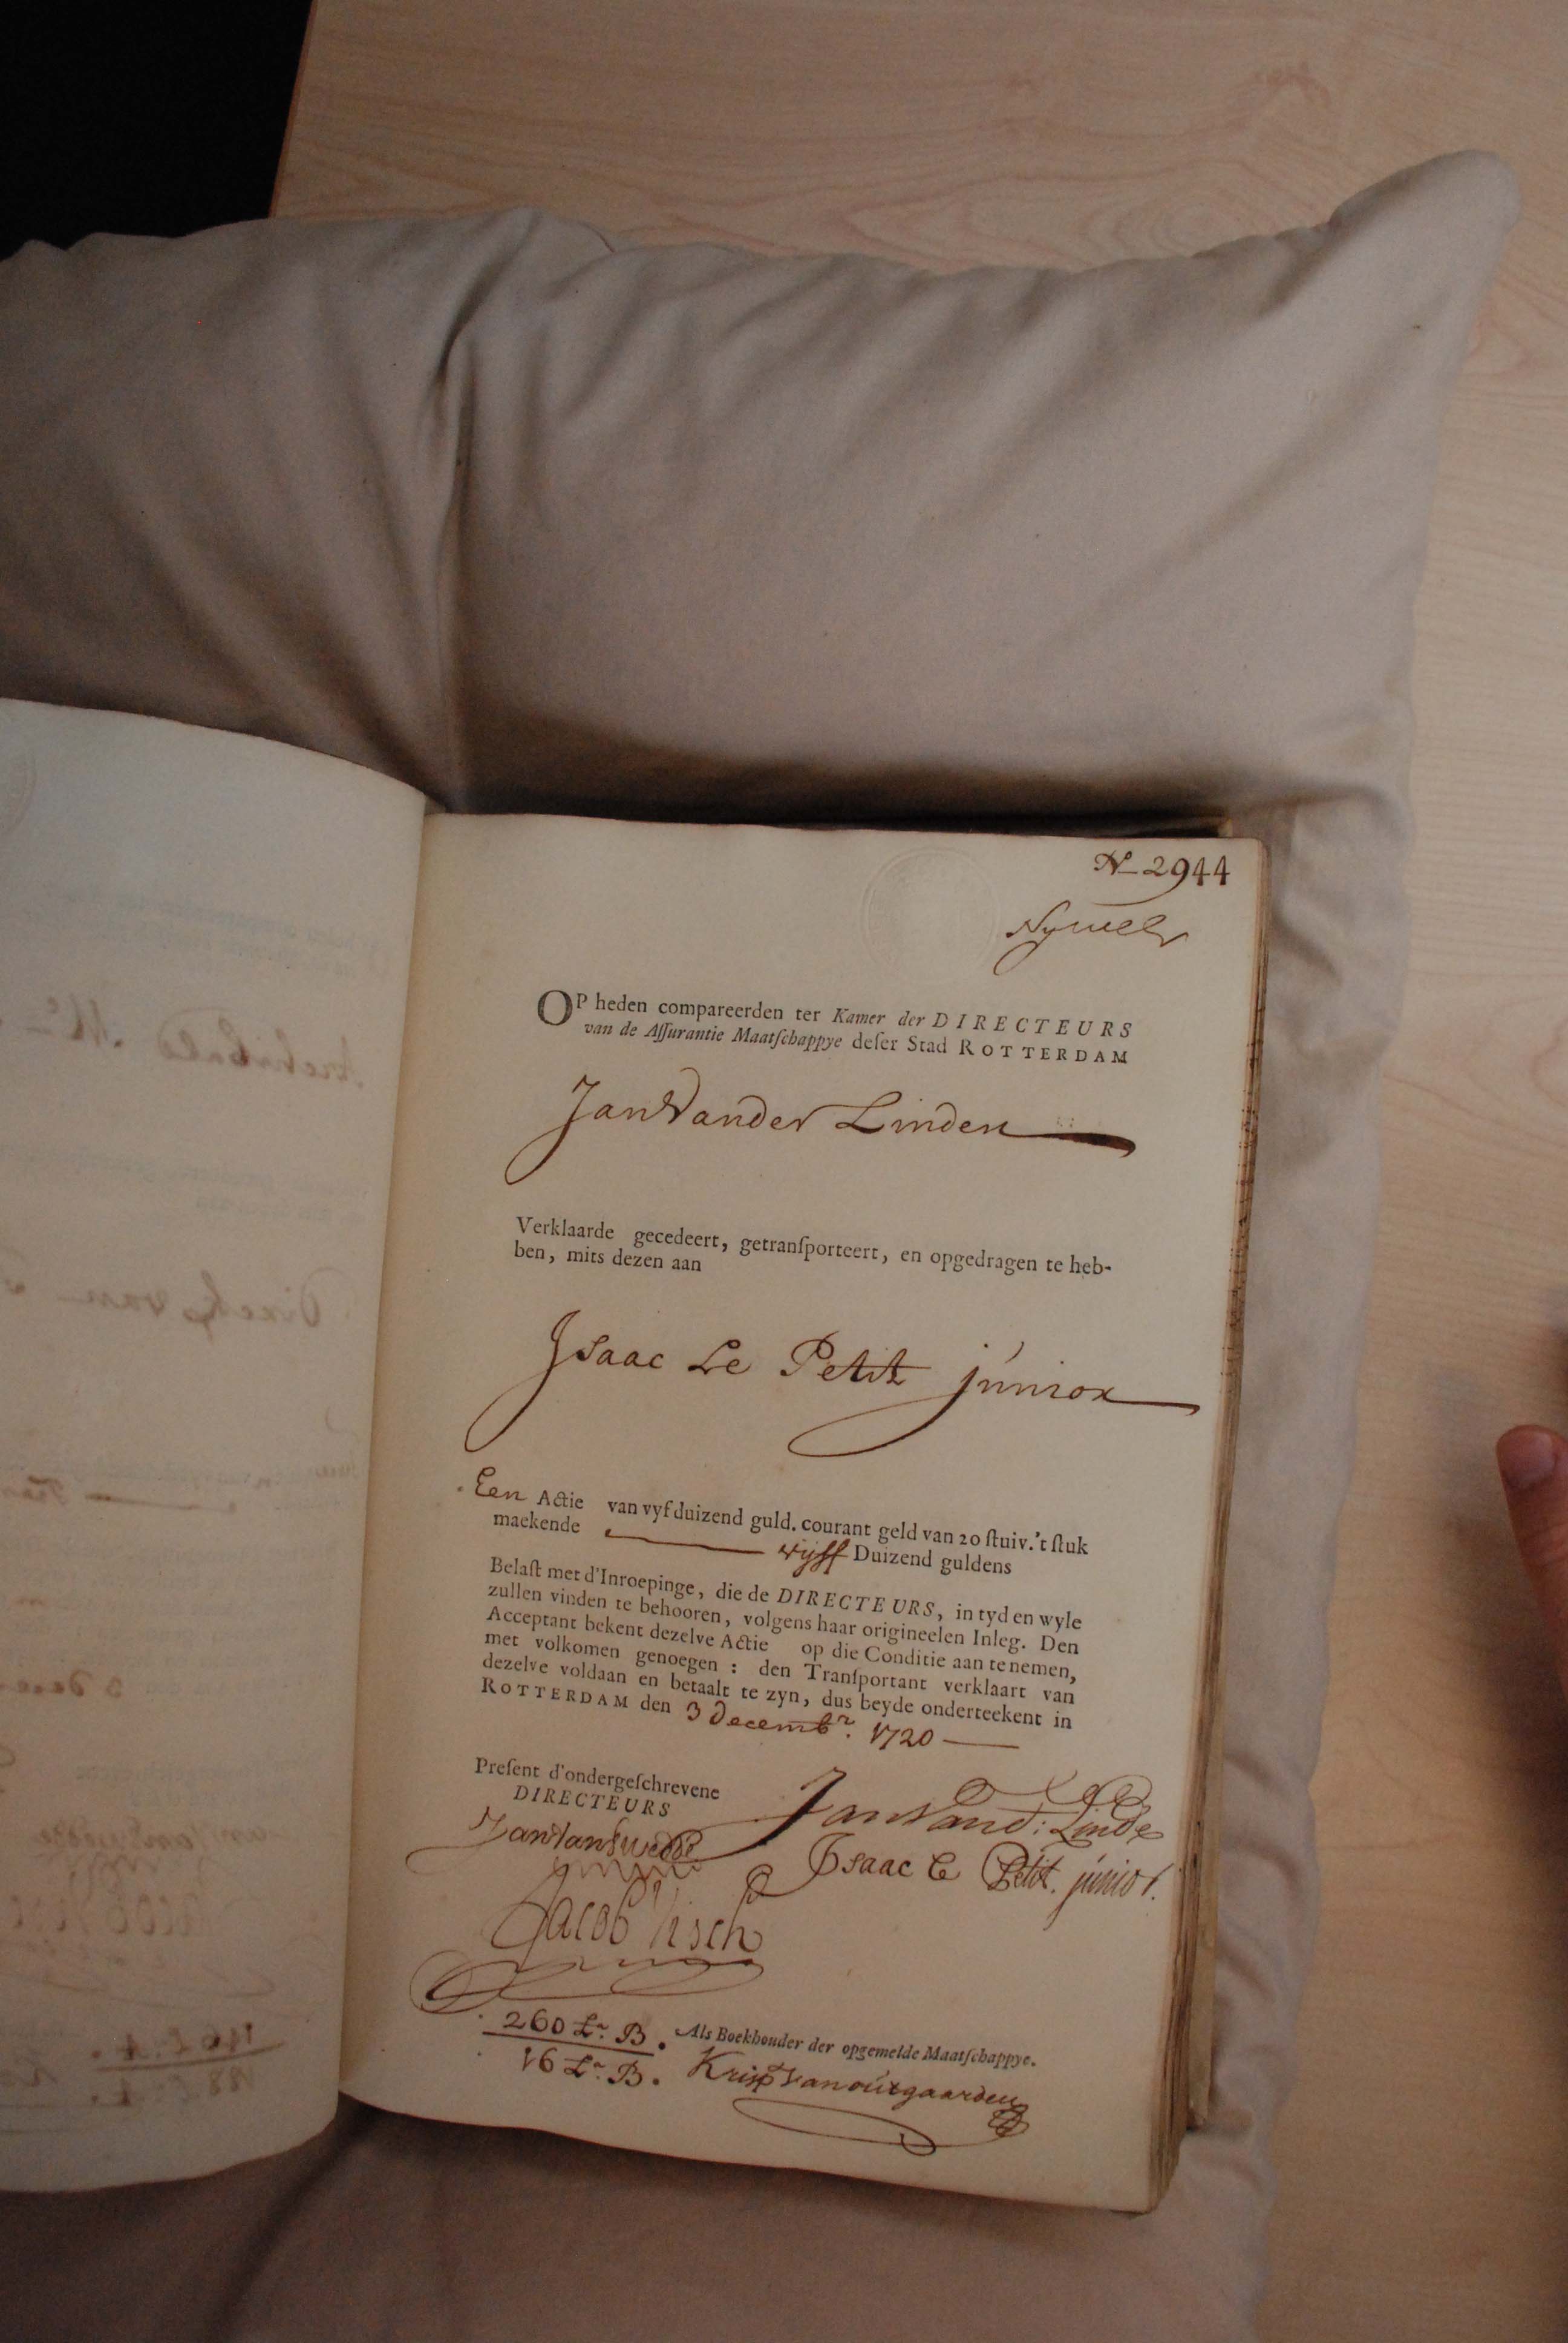 No 2944
OP heden compareerden ter Kamer der DIRECTEURS
van de Aſſurantie Maatſchappye deſer Stad ROTTERDAM
Jan Vander Linden
Verklaarde gecedeert, getranſporteert, en opgedragen te heb-
ben, mits dezen aan
Isaac Le Petit júnior
Een Actie van vyf duizend guld. courant geld van 20 ſtuiv. 't ſtuk
maekende vijff Duizend guldens
Belaſt met d'Inroepinge, die de DIRECTEURS, in tyd en wyle
zullen vinden te behooren, volgens haar origineelen Inleg. Den
Acceptant bekent dezelve Actie op die Conditie aan te nemen,
met volkomen genoegen : den Tranſportant verklaart van
dezelve voldaan en betaalt te zyn, dus beyde onderteekent in
ROTTERDAM den 3 Decembr. 1720
Preſent d'ondergeſchrevene
DIRECTEURS
Jan Vand: Linde
Isaac Le Petit. júnior.
Jacob Visch
260 Lr. B.
16 Lr. B.
Als Boekhouder der opgemelde Maatſchappye.
Kris Van outgaarden